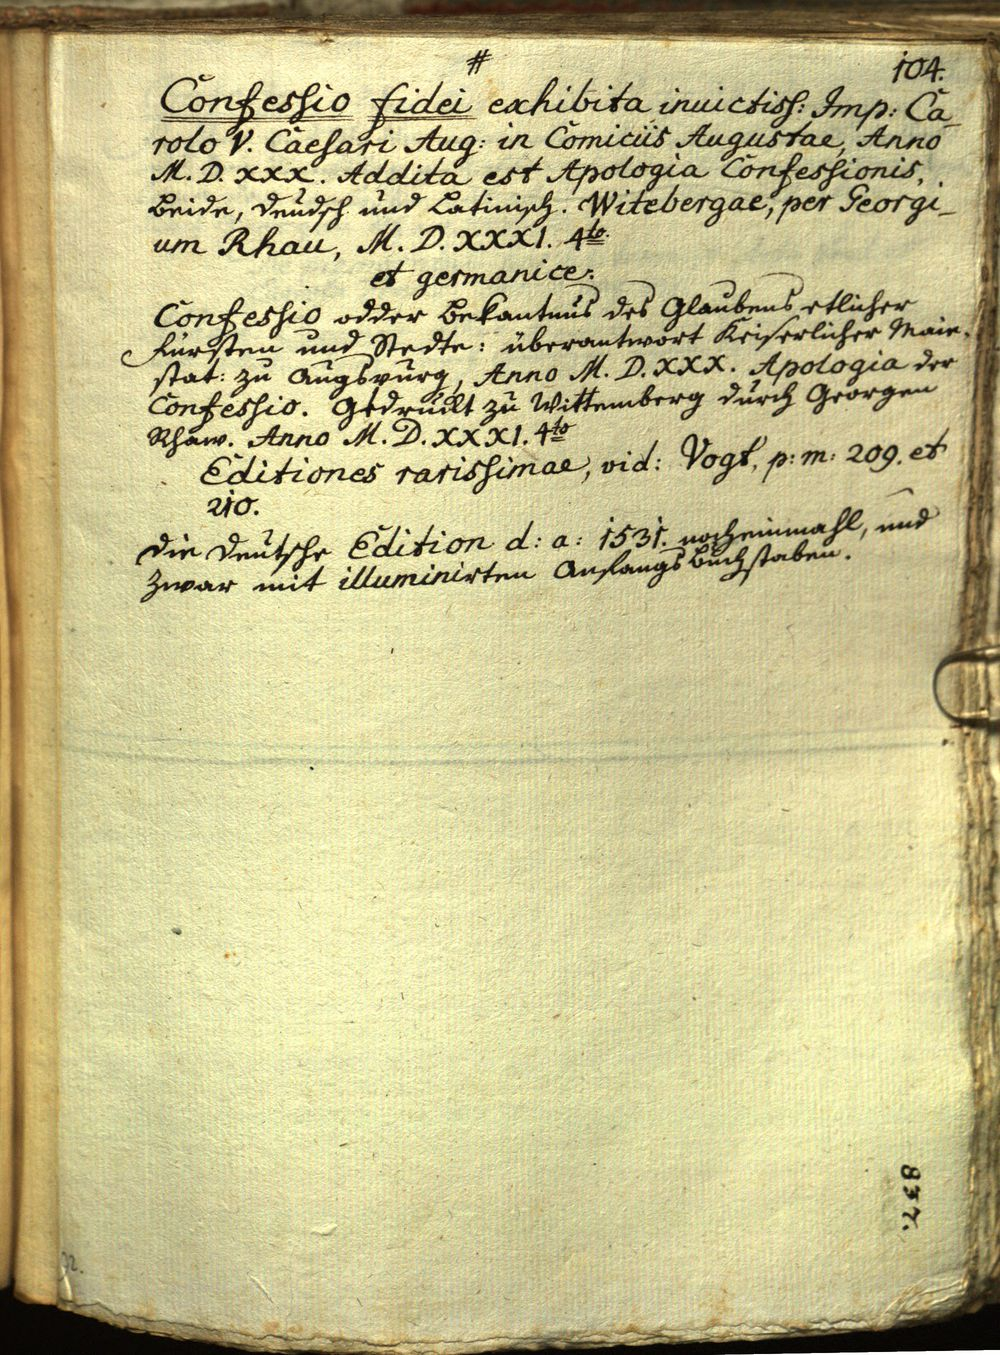 #
104.
Confessio fidei exhibita inuictiss: Imp: Ca-
rolo V. Caesari Aug: in Comiciis Augustae, Anno
M. D. XXX. Addita est Apologia Confessionis,
Beide, Deudsch und Latinisch. Witebergae, per Georgi-
um Rhau, M. D. XXXI. 4to
et germanice:
Confessio odder Bekantnus des Glaubens etlicher
Fürsten und Stedte: überantwort Keiserlicher Maie-
stat: zu Augspurg, Anno M. D. XXX. Apologia der
Confessio. Gedruckt zu Wittemberg durch Georgen
Rhaw. Anno M. D. XXXI. 4to
Editiones rarissimae, vid: Vogt, p: m: 209. et
210.
Die Deutsche Edition d: a: 1531. noch einmahl, und
zwar mit illuminirten Anfangs Buchstaben.
837.